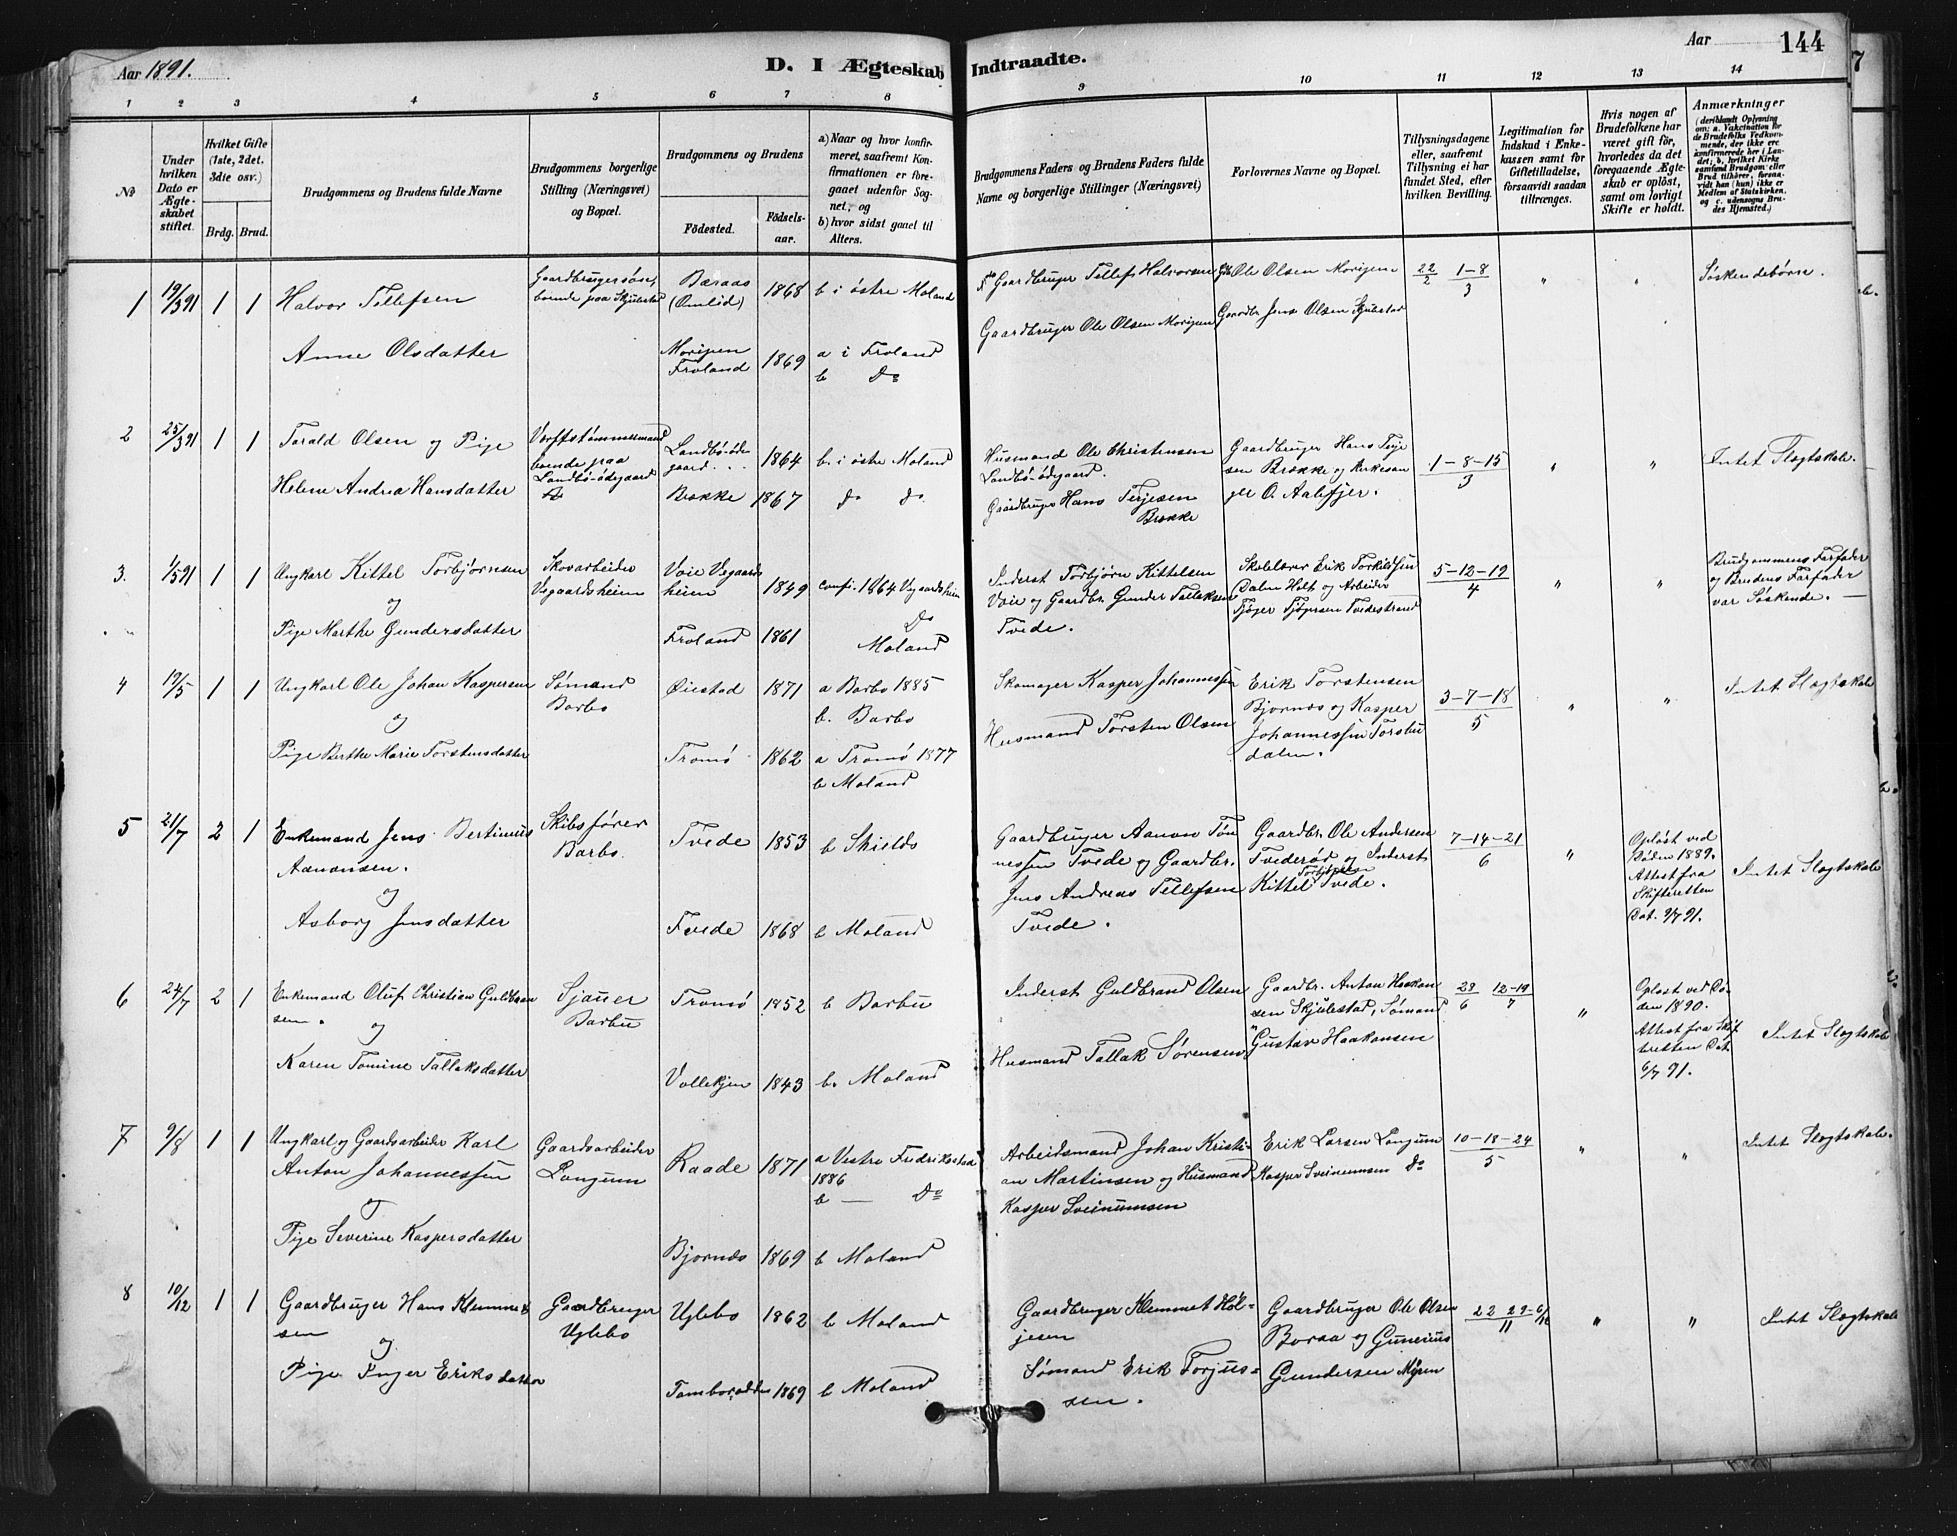 Aar 1891.
D. I Ægteskab Indtraadte.
Aar
144
7
1 2 3 4 5 6 7 8 9 10 11 12 13 14
No
Under hvilken Dato er Ægteskabet stiftet.
Hvilket Gifte (1ste, 2det. 3die osv.)
Brdg. Brud.
Brudgommens og Brudens fulde Navne
Brudgommens borgerlige Stilling (Næringsvei) og Bopæl.
Brudgommens og Brudens
Födested. Födsels-aar.
a) Naar og hvor konfirmeret, saafremt Konfirmationen er foregaaet udenfor Sognet, og b) hvor sidst gaaet til Alters.
Brudgommens Faders og Brudens Faders fulde Navne og borgerlige Stillinger (Næringsvei)
Forlovernes Navne og Bopæl.
Tillysningsdagene eller, saafremt Tillysning ei har fundet Sted, efter hvilken Bevilling.
Legitimation for Indskud i Enkekassen samt for Giftetilladelse, forsaavidt saadan tiltrænges.
Hvis nogen af Brudefolkene har været gift för, hvorledes da det foregaaende Ægteskab er oplöst, samt om lovligt Skifte er holdt.
Anmærkninger (deriblandt Oplysning om: a. Vakcination for de Brudefolks Vedkommende, der ikke ere konfirmerede her i Landet; b, hvilket Kirkesamfund Brudgom- eller Brud tilhörer, forsaavidt han (hun) ikke er Medlem af Statskirken. og c. udensogns Brudes Hjemsted.)
1 19/3 91 1 1 Halvor Tellefsen Gaardbrugersøn, boende paa Skjulestad Baraas (Omlid) 1868 b i østre Moland Gaardbruger Tellef Halvorsen Ole Olsen Moripen 22/2 1-8/3 " " Søskendebørn.
Anne Olsdatter Moripen Froland 1869 a i Froland b Do Gaardbruger Ole Olsen Moripen Gaardbr. Jens Olsen Skjulestad
2 25/3 91 1 1 Tarald Olsen og Pige Verftstømmermand boende paa Landbö-ödegaard Landbö-öde gaard 1864 b. i østre Moland Husmand Ole Christensen Landbö-ödegaard. Gaardbruger Hans Terjesen Brække og Kirkesanger O. Aalefjer. 1-8-15/3 " " Intet Slegtskab.
Helene Andrea Hansdatter Brække 1867 do do Gaardbruger Hans Terjesen Brække
3. 1/5 91 1 1 Ungkarl Kittel Torbjørnsen Skovarbeider Vegaardsheim Voie Vegaardsheim 1849 conf. 1864 Vegaardsheim Inderst Torbjörn Kittelsen Voie og Gaardbr. Gunder Tallaksen Tvede. Skolelærer Erik Torkildsen Dalen Holt og Arbeider Tjøger Tjøgersen Tvedestrand 5-12-19/4 " " Brudgommens Farfader og Brudens Farfader var Søskende.
og
Pige Marthe Gundersdatter Froland 1861 Do Moland
4 17/5 1 1 Ungkarl Ole Johan Kaspersen Sømand Barbo Øiestad 1871 a Barbo 1885 b. Barbo Skomager Kasper Johannessen Erik Torstensen Bjornæs og Kasper Johannessen Torsbudalen. 3-7-18/5 " " Intet Slegtskab
og
Pige Berthe Marie Torstensdatter Tromø 1862 a Tromø 1877 b Moland Husmand Torsten Olsen
5 21/7 2 1 Enkemand Jens Bertinius Aanonsen. Skibsfører Barbo. Tvede 1853 b Skields Gaardbruger Aanon Tønnessen Tvede og Gaardbr. Jens Andreas Tellefsen Tvede. Gaardbr. Ole Andersen Tvederød og Inderst Kittel Torbjørnsen Tvede. 7-14-21/6 " Opløst ved Døden 1889. Attest fra Skifteretten Dat. 9/7 91. Intet Slegtskab
og
Asborg Jensdatter Tvede 1868 b Moland
6 24/7 2 1 Enkemand Oluf Christian Guldbrandsen. Sjauer Barbu Tromø 1852 b Barbu Inderst Guldbrand Olsen Gaardbr. Anton Haakonsen Skjulestad, Sømand Gustav Haakonsen 28/6 12-19/7 " Opløst ved Døden 1890. Attest fra Skifteretten Dat. 6/7 91. Intet Slegtskab
og
Karen Tomine Tallaksdatter Vollekjen 1843 b. Moland Husmand Tallak Sørensen
7 9/8 1 1 Ungkarl og Gaardsarbeider Karl Anton Johannessen Gaardsarbeider Longum Raade 1871 a Vestre Fredrikstad 1886 b — Do Arbeidsmand Johan Kristian Martinsen og Husmand Kasper Sveinumsen Erik Larsen Longum Kasper Sveinumsen Do 10-18-24/5 " " Intet Slegtskab.
og
Pige Severine Kaspersdatter Bjornæs 1869 b Moland
8 10/12 1 1 Gaardbruger Hans Klemmetsen Gaardbruger Uglebo Uglebo 1862 b Moland Gaardbruger Klemmet Høljesen Gaardbruger Ole Olsen Boraa og Gunerius Gundersen Myren 22 29-6/12 11 " " Intet Slegtskab
og
Pige Inger Eriksdatter 1869 b Moland Sømand Erik Torjussen.